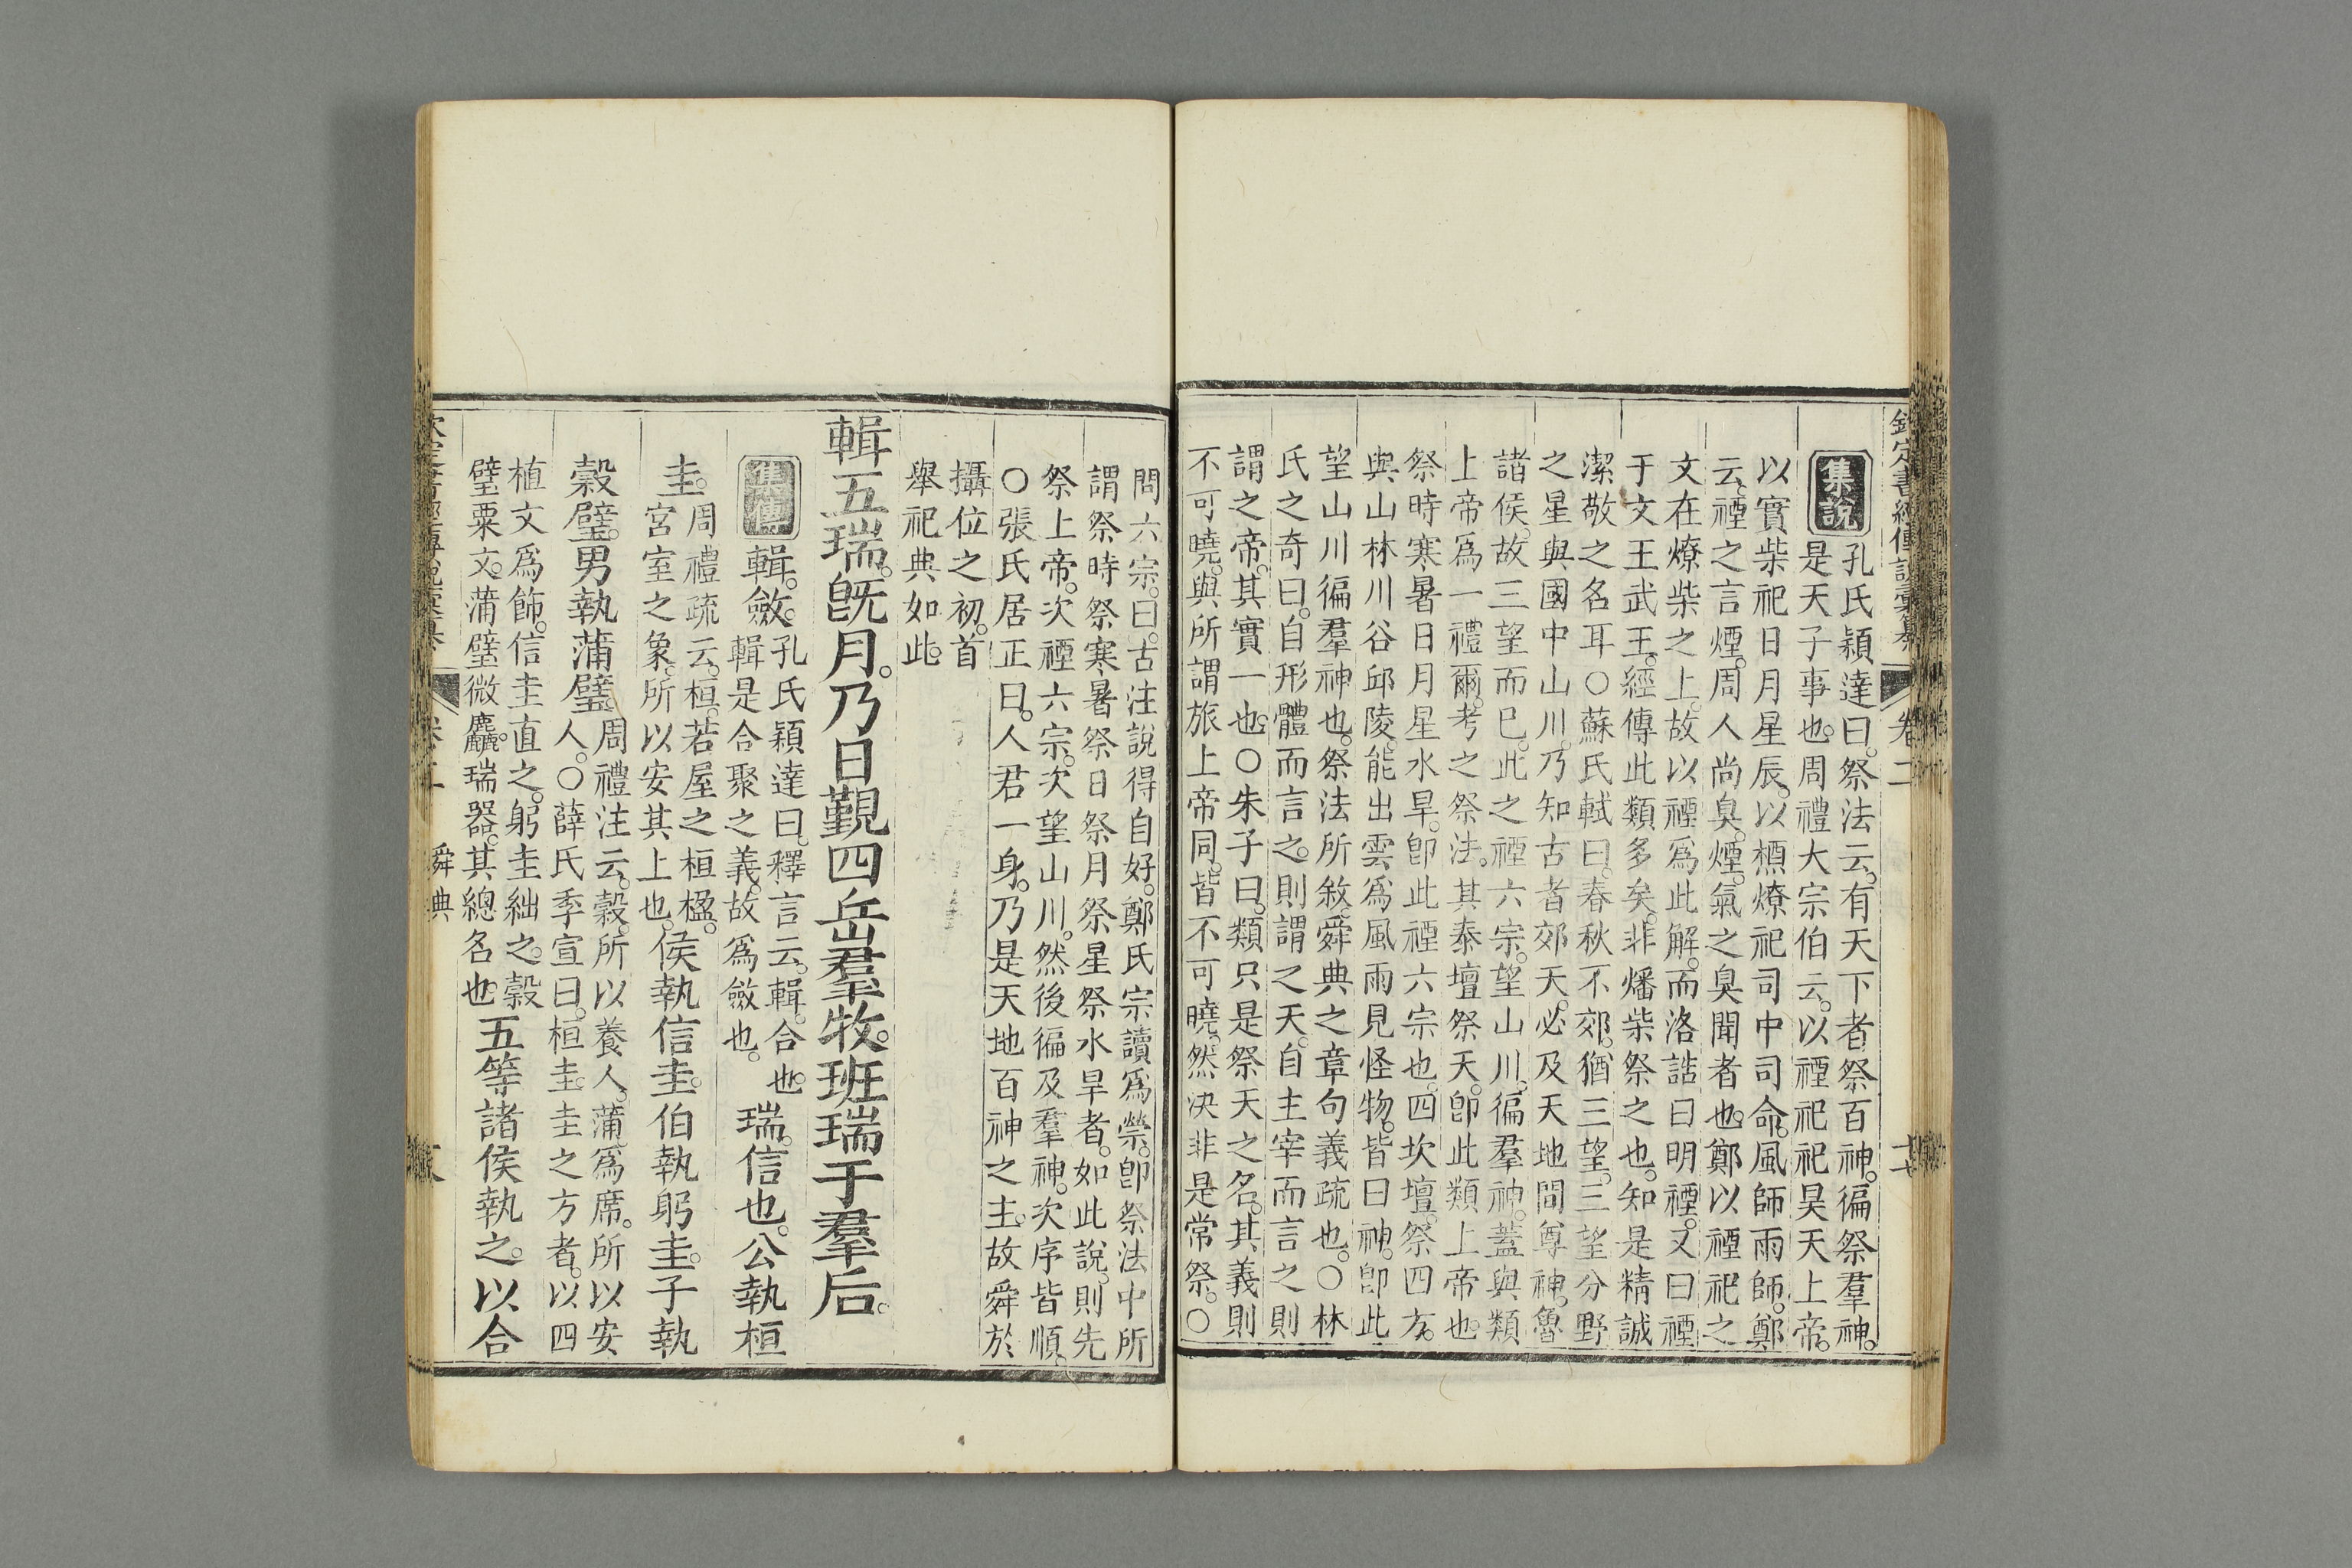 欽定書經傳說彙纂
卷二
集說
孔氏穎達曰。祭法云。有天下者祭百神。徧祭羣神。
是天子事也。周禮大宗伯云。以禋祀祀昊天上帝。
以實柴祀日月星辰。以槱燎祀司中司命。風師雨師。鄭
云。禋之言煙。周人尚臭。煙。氣之臭聞者也。鄭以禋祀之
文在燎柴之上。故以禋爲此解。而洛誥曰明禋。又曰禋
于文王武王。經傳此類多矣。非燔柴祭之也。知是精誠
潔敬之名耳○蘇氏軾曰。春秋不郊。猶三望。三望分野
之星與國中山川。乃知古者郊天。必及天地間尊神。魯
諸侯。故三望而已。此之禋六宗。望山川。徧羣神。蓋與類
上帝爲一禮爾。考之祭法。其泰壇祭天。卽此類上帝也。
祭時寒暑日月星水旱。卽此禋六宗也。四坎壇。祭四方。
與山林川谷邱陵。能出雲爲風雨見怪物。皆曰神。卽此
望山川徧羣神也。祭法所敘。舜典之章句義疏也。○林
氏之奇曰。自形體而言之。則謂之天。自主宰而言之則
謂之帝。其實一也。○朱子曰。類只是祭天之名。其義則
不可曉。與所謂旅上帝同。皆不可曉。然決非是常祭。○
問六宗。曰。古注說得自好。鄭氏宗讀爲禜。卽祭法中所
謂祭時祭寒暑祭日祭月祭星祭水旱者。如此說。則先
祭上帝。次禋六宗。次望山川。然後徧及羣神。次序皆順。
○張氏居正曰。人君一身。乃是天地百神之主。故舜於
攝位之初。首
舉祀典如此。
輯五瑞。旣月。乃日覲四岳羣牧。班瑞于羣后。
集傳
輯。斂。
孔氏穎達曰。釋言云。輯。合也。
輯是合聚之義。故爲斂也。
瑞。信也。公執桓
圭。
周禮疏云。桓。若屋之桓楹。
宮室之象。所以安其上也。
侯執信圭。伯執躬圭。子執
穀璧。男執蒲璧。
周禮注云。穀。所以養人。蒲爲席。所以安
人。○薛氏季宣曰。桓圭。圭之方者。以四
植文爲飾。信圭直之。躬圭絀之。穀
璧粟文。蒲璧微麤。瑞器。其總名也。
五等諸侯執之。以合
舜典